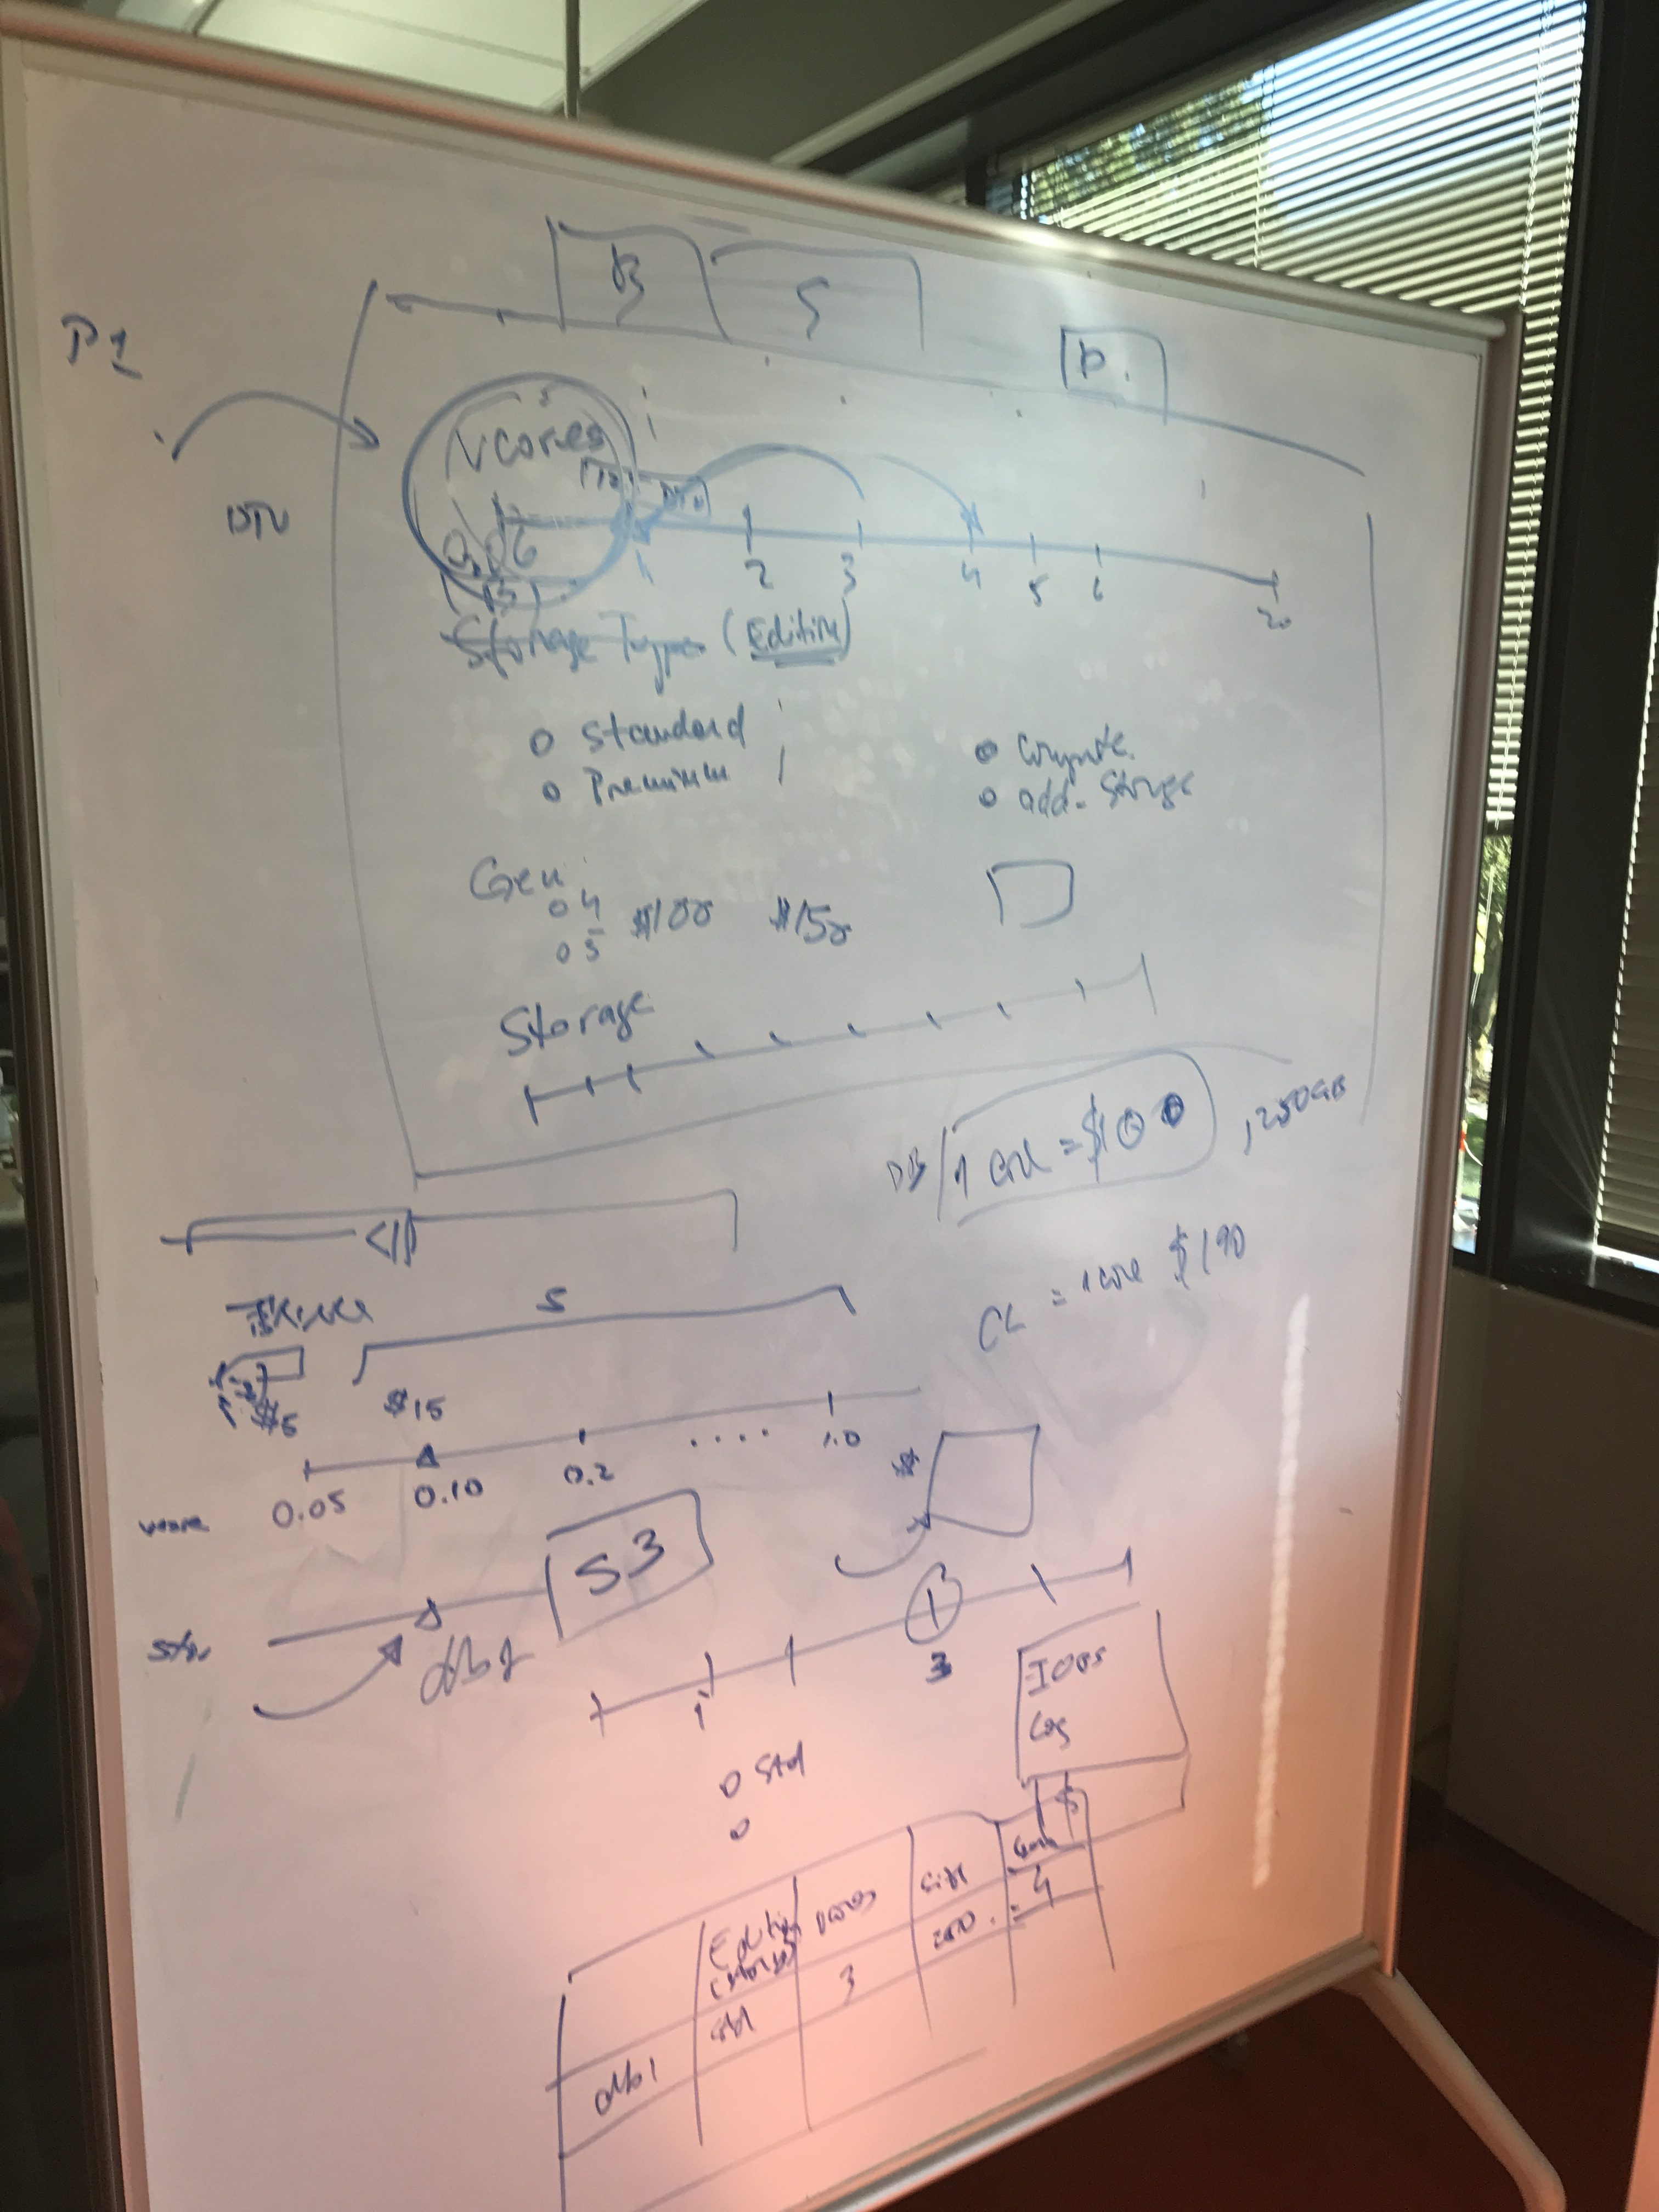 B
S
P.
P1
vcores
DTU
1 2 3 4 5 6 20
Storage Type (Edition)
o Standard
o Premium
o Compute
o add. Storage
Gen
o 4
o 5
$100 $150
Storage
DB 1 core = $100, 250GB
CL = 1 core $190
S
$5 $15
0.05 0.10 0.2 .... 1.0
vcore
$
S3
Stor
db1
1 3
IOPS
Log
o Std
o
$
Edition (storage) vcores size Gen
db1 std 3 4